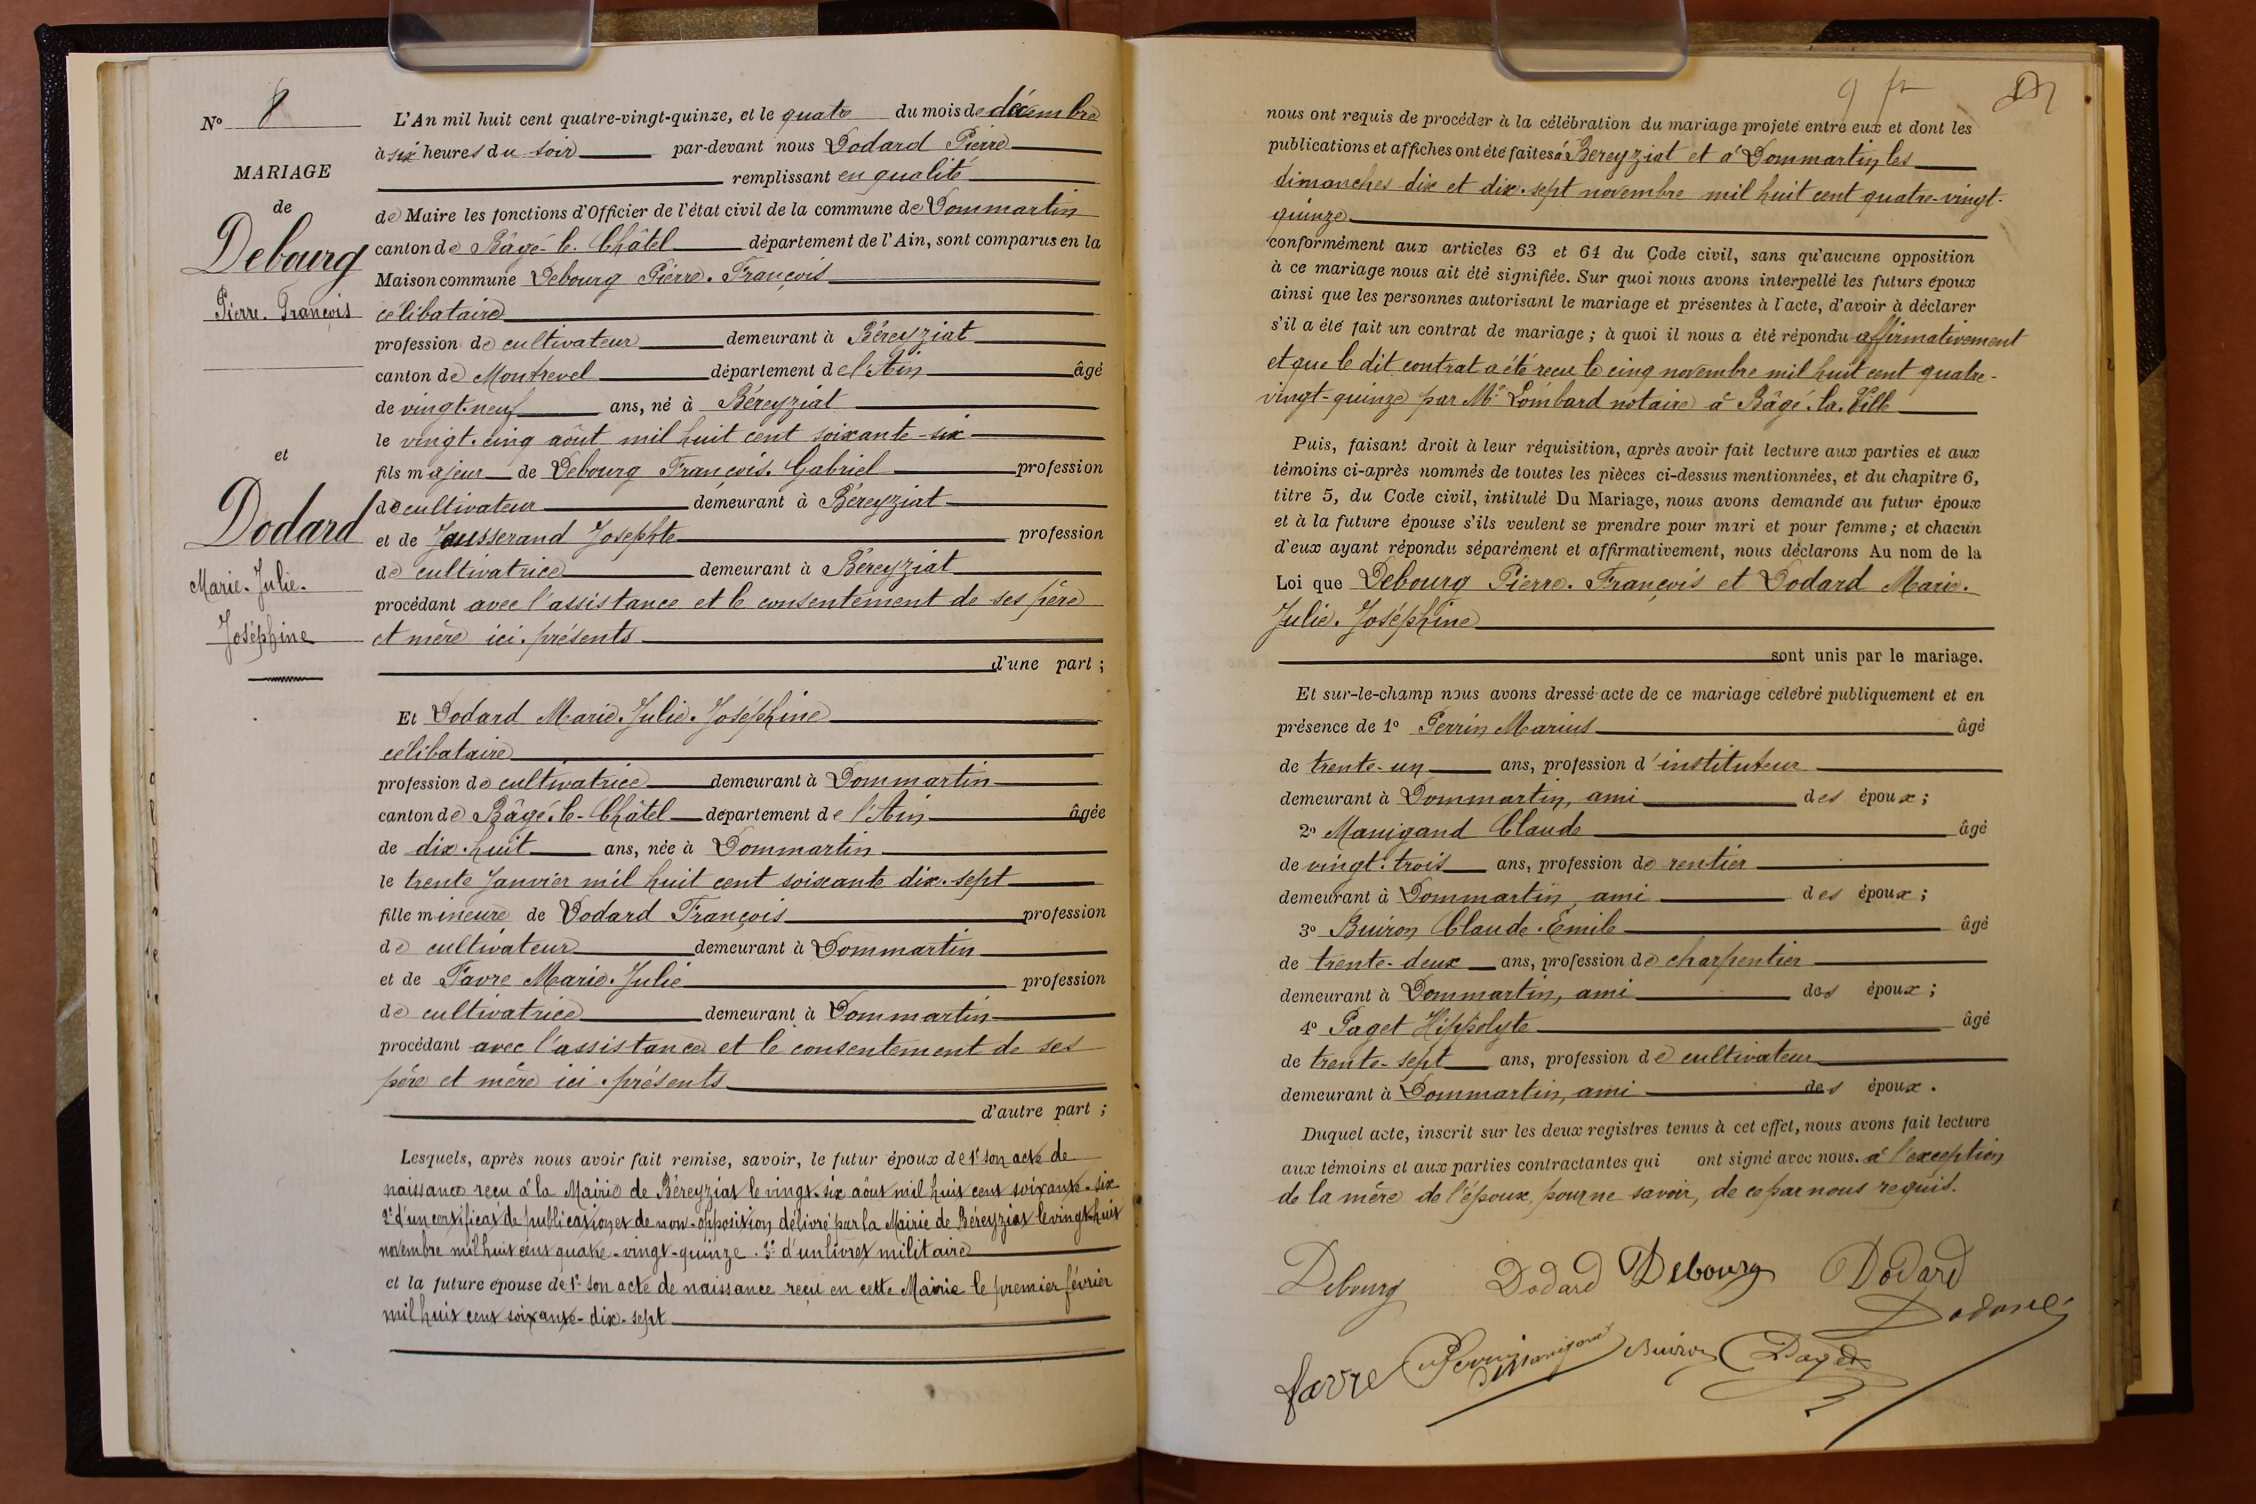 N° 8
MARIAGE
de
Debourg
Pierre-François
et
Dodard
Marie-Julie-
Joséphine
L'An mil huit cent quatre-vingt-quinze, et le quatre du mois de décembre
à six heures du soir par-devant nous Dodard Pierre
remplissant en qualité
de Maire les fonctions d'Officier de l'état civil de la commune de Dommartin
canton de Bâgé-le-Châtel département de l'Ain, sont comparus en la
Maison commune Debourg Pierre-François
célibataire
profession de cultivateur demeurant à Béreyziat
canton de Montrevel département de l'Ain âgé
de vingt-neuf ans, né à Béreyziat
le vingt-cinq août mil huit cent soixante-six
fils majeur de Debourg François-Gabriel profession
de cultivateur demeurant à Béreyziat
et de Jousserand Josephte profession
de cultivatrice demeurant à Béreyziat
procédant avec l'assistance et le consentement de ses père
et mère ici présents
d'une part ;
Et Dodard Marie-Julie-Joséphine
célibataire
profession de cultivatrice demeurant à Dommartin
canton de Bâgé-le-Châtel département de l'Ain âgée
de dix-huit ans, née à Dommartin
le trente Janvier mil huit cent soixante dix-sept
fille mineure de Dodard François profession
de cultivateur demeurant à Dommartin
et de Favre Marie-Julie profession
de cultivatrice demeurant à Dommartin
procédant avec l'assistance et le consentement de ses
père et mère ici présents
d'autre part ;
Lesquels, après nous avoir fait remise, savoir, le futur époux de 1° son acte de
naissance reçu à la Mairie de Béreyziat le vingt-six août mil huit cent soixante-six
2° d'un certificat de publications et de non-opposition délivré par la Mairie de Béreyziat le vingt-huit
novembre mil huit cent quatre-vingt-quinze. 3° d'un livret militaire
et la future épouse de 1° son acte de naissance reçu en cette Mairie le premier février
mil huit cent soixante-dix-sept
nous ont requis de procéder à la célébration du mariage projeté entre eux et dont les
publications et affiches ont été faites à Béreyziat et à Dommartin, les
dimanches dix et dix-sept novembre mil huit cent quatre-vingt-
quinze
conformément aux articles 63 et 64 du Code civil, sans qu'aucune opposition
à ce mariage nous ait été signifiée. Sur quoi nous avons interpellé les futurs époux
ainsi que les personnes autorisant le mariage et présentes à l'acte, d'avoir à déclarer
s'il a été fait un contrat de mariage ; à quoi il nous a été répondu affirmativement
et que le dit contrat a été reçu le cinq novembre mil huit cent quatre-
vingt-quinze par Me Lombard notaire à Bâgé-la-Ville
Puis, faisant droit à leur réquisition, après avoir fait lecture aux parties et aux
témoins ci-après nommés de toutes les pièces ci-dessus mentionnées, et du chapitre 6,
titre 5, du Code civil, intitulé Du Mariage, nous avons demandé au futur époux
et à la future épouse s'ils veulent se prendre pour mari et pour femme ; et chacun
d'eux ayant répondu séparément et affirmativement, nous déclarons Au nom de la
Loi que Debourg Pierre-François et Dodard Marie-
Julie-Joséphine
sont unis par le mariage.
Et sur-le-champ nous avons dressé acte de ce mariage célébré publiquement et en
présence de 1° Perrin Marius âgé
de trente-un ans, profession d'instituteur
demeurant à Dommartin, ami des époux ;
2° Manigand Claude âgé
de vingt-trois ans, profession de rentier
demeurant à Dommartin, ami des époux ;
3° Buiron Claude-Emile âgé
de trente-deux ans, profession de charpentier
demeurant à Dommartin, ami des époux ;
4° Paget Hippolyte âgé
de trente-sept ans, profession de cultivateur
demeurant à Dommartin, ami des époux.
Duquel acte, inscrit sur les deux registres tenus à cet effet, nous avons fait lecture
aux témoins et aux parties contractantes qui ont signé avec nous. à l'exception
de la mère de l'époux, pour ne savoir, de ce par nous requis.
Debourg Dodard Debourg Dodard
Dodard
favre Perrin Manigand Buiron Paget